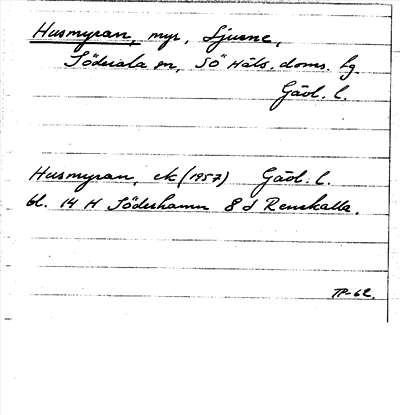 Husmyran, myr, Ljusne,
Söderala sn, SÖ Häls. doms. lg
Gävl. l.
Husmyran, ek (1957) Gävl. l.
bl. 14 H Söderhamn 8 d Renskalla.
TP-62.